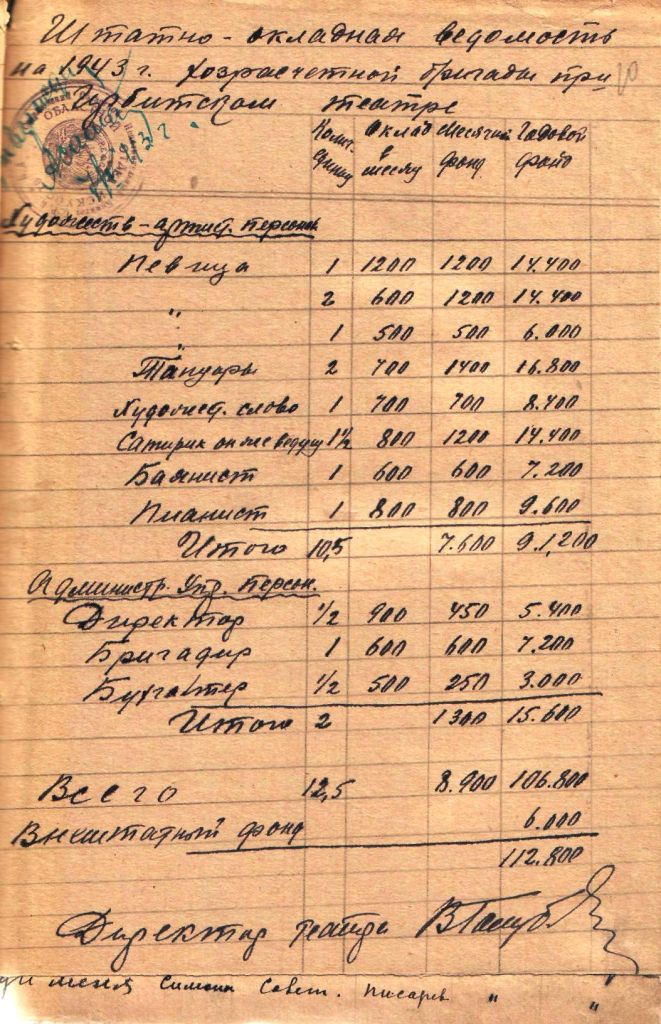 Штатно-окладная ведомость
на 1943 г. хозрасчетной бригады при
Ирбитском театре
Колич. Оклад Месячн. Годовой
единиц в месяц фонд. фонд
Художеств-артист. персонал
Певица 1 1200 1200 14.400
" 2 600 1200 14.400
" 1 500 500 6.000
Танцоры 2 700 1400 16.800
Художест. слово 1 700 700 8.400
Сатирик он же ведущ 1½ 800 1200 14.400
Баянист 1 600 600 7.200
Пианист 1 800 800 9.600
Итого 10,5 7.600 91,200
Администр. Упр. персон.
Директор ½ 900 450 5.400
Бригадир 1 600 600 7.200
Бухгалтер ½ 500 250 3.000
Итого 2 1300 15.600
Всего 12,5 8.900 106.800
Внештатный фонд 6.000
112.800
Директор театра
имения Совет. писарев " "